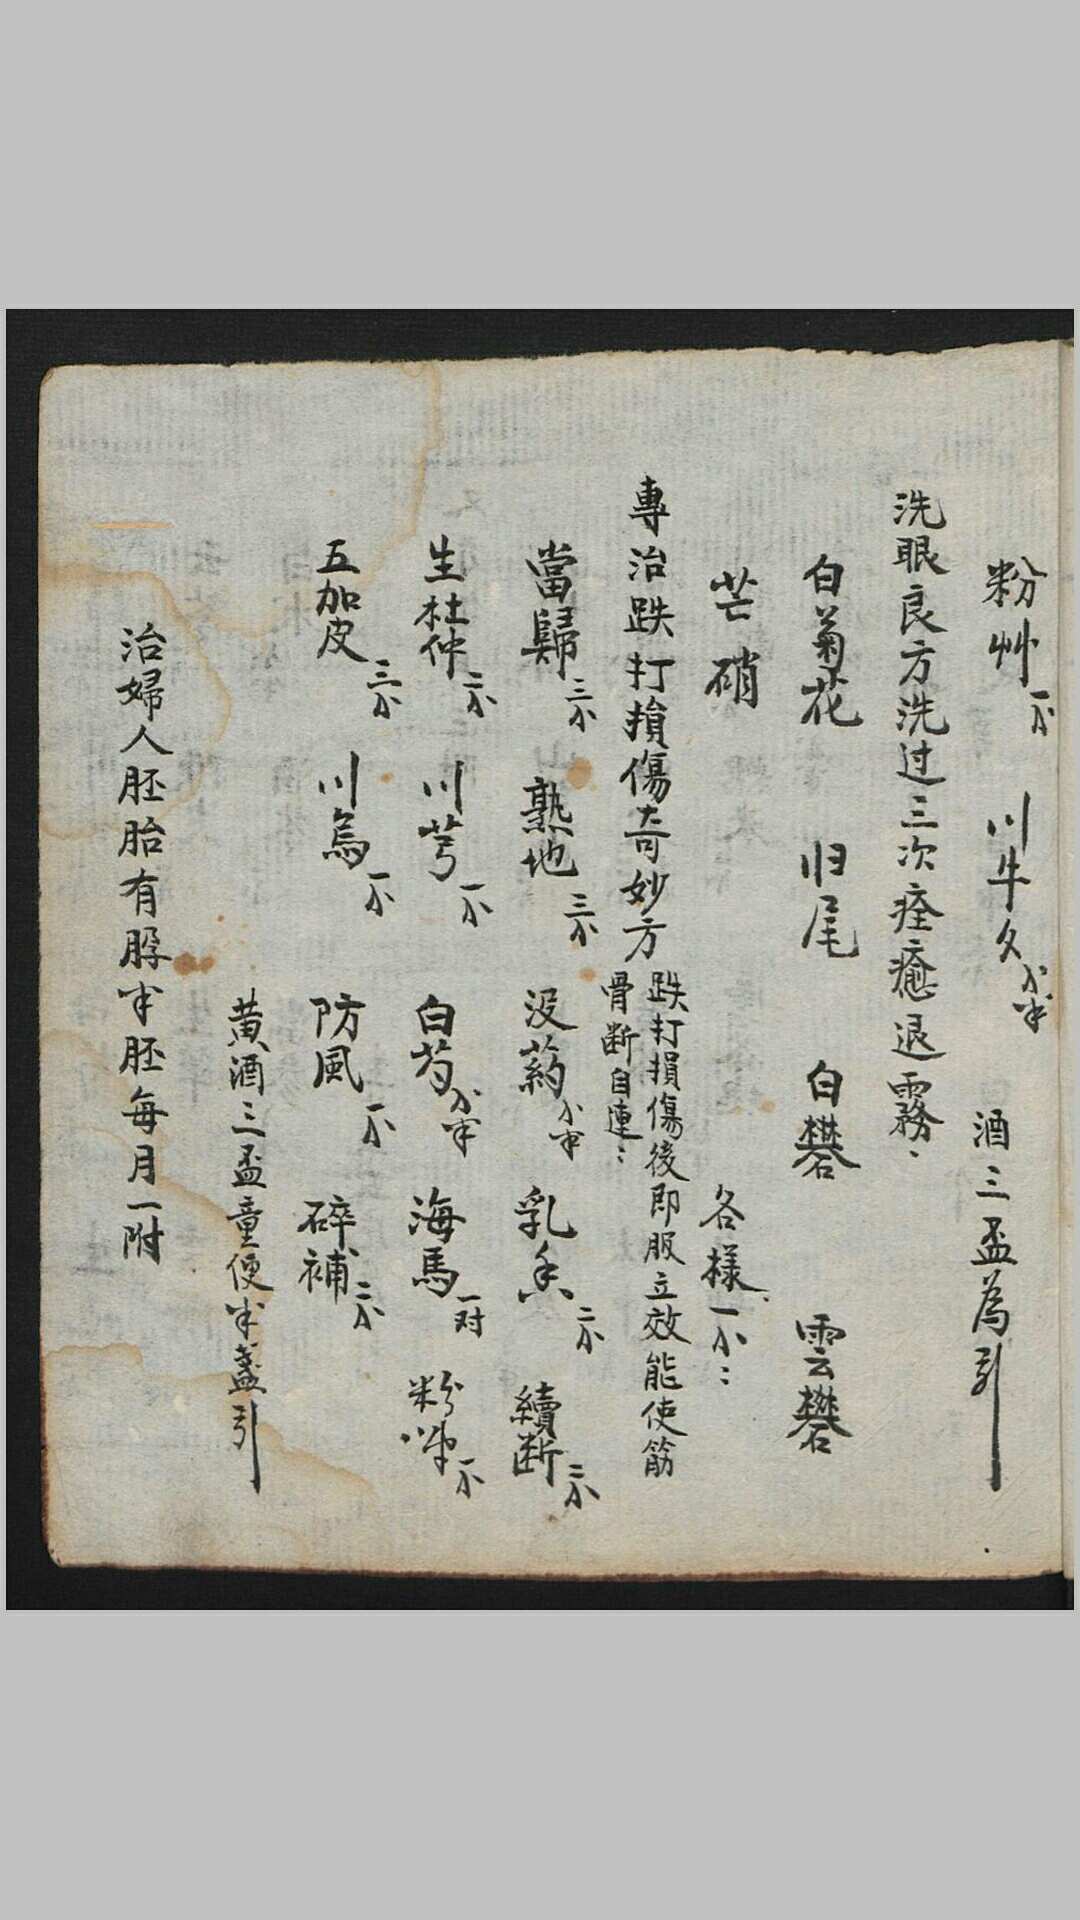 粉艸一个 川牛夕个半 酒三盃為引
洗眼良方洗过三次痊癒退霧
白菊花 归尾 白礬 雲礬
芒硝 各樣一个
專治跌打損傷奇妙方 跌打損傷後即服立效能使筋
骨断自連
當歸三个 熟地三个 没葯个半 乳香二个 續断二个
生杜仲二个 川芎一个 白芍个半 海馬一对 粉一个
五加皮三个 川烏一个 防風一个 碎補二个
黄酒三盃童便半盞引
治婦人胚胎有半胚每月一附